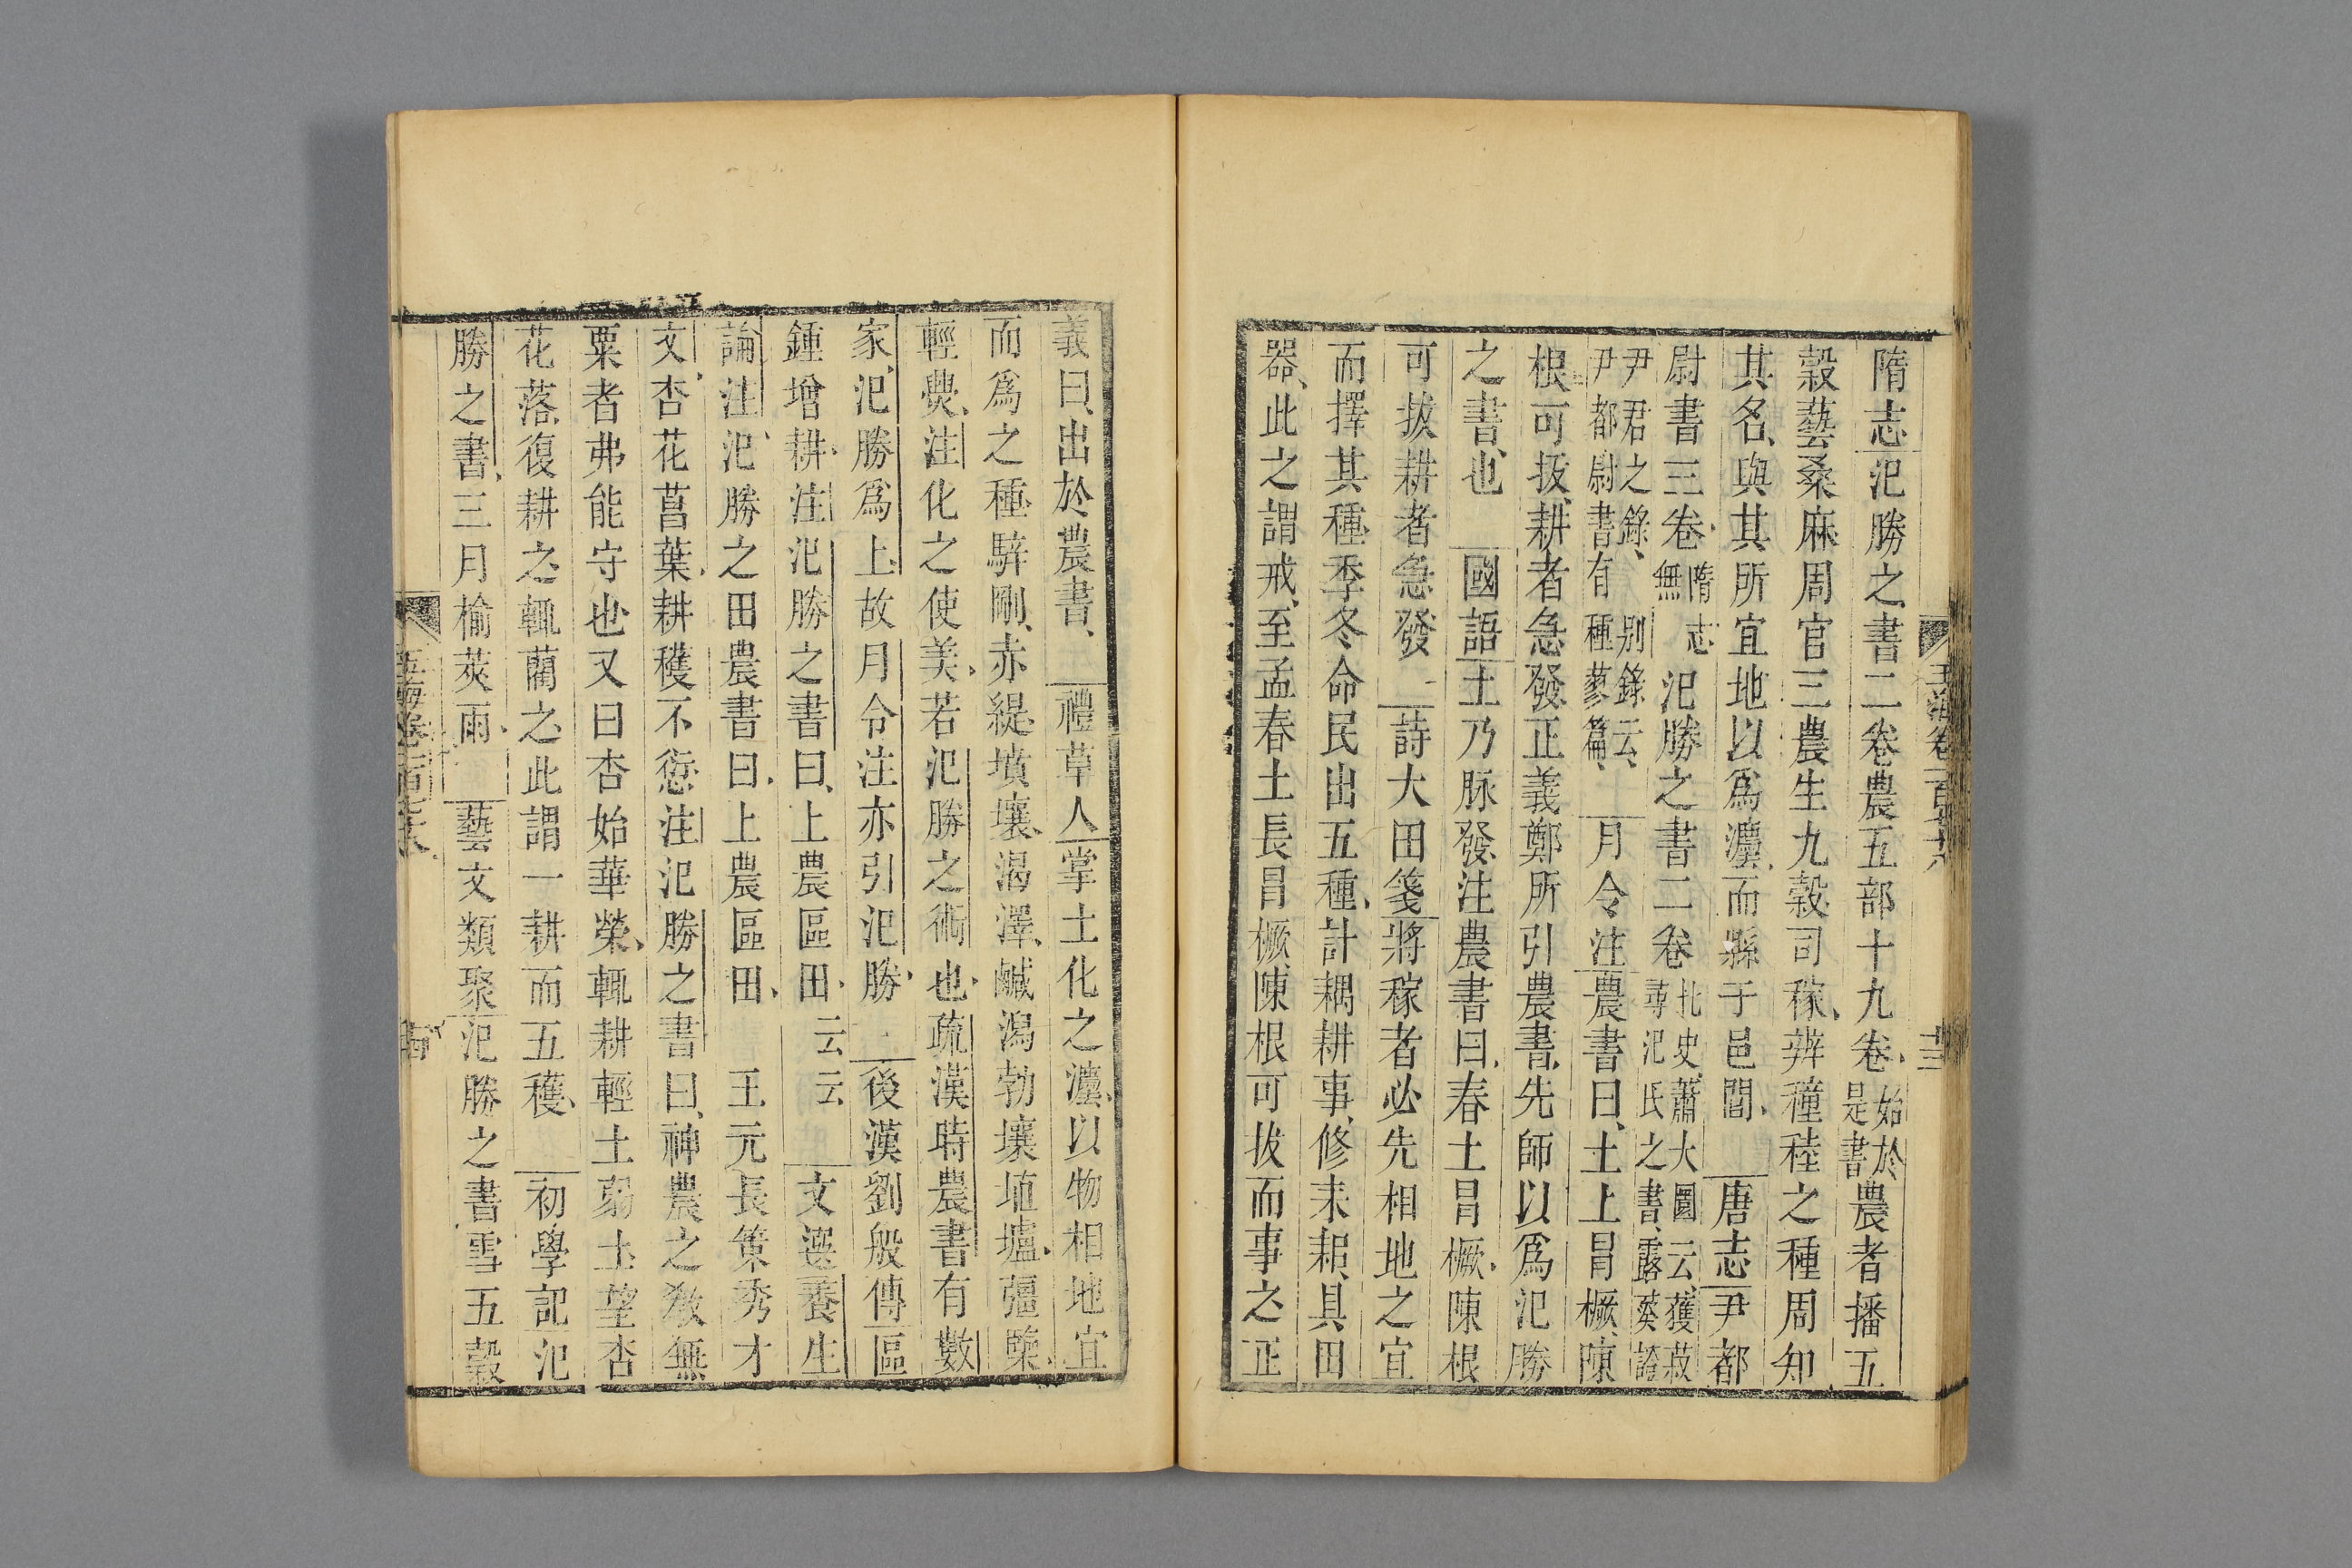 隋志氾勝之書二卷農五部十九卷始於是書農者播五
穀藝桑麻周官三農生九穀司稼辨穜稑之種周知
其名與其所宜地以爲灋而縣于邑閭唐志尹都
尉書三卷隋志無氾勝之書二卷北史蕭大圜云穫菽尋氾氏之書露葵諳
尹君之錄尹都尉書有别錄云種蓼篇月令注農書曰土上冒橛陳
根可拔耕者急發正義鄭所引農書先師以爲氾勝
之書也國語土乃脉發注農書曰春土冒橛陳根
可拔耕者急發詩大田箋將稼者必先相地之宜
而擇其種季冬命民出五種計耦耕事修耒耜具田
器此之謂戒至孟春土長冒橛陳根可拔而事之正
義曰出於農書禮草人掌土化之灋以物相地宜
而爲之種騂剛赤緹墳壤渴澤鹹潟勃壤埴壚彊㯺
輕㷿注化之使美若氾勝之術也疏漢時農書有數
家氾勝爲上故月令注亦引氾勝後漢劉般傳區
鍾增耕注氾勝之書曰上農區田云云文選養生
論注氾勝之田農書曰上農區田王元長策秀才
文杏花菖葉耕穫不愆注氾勝之書曰神農之敎無
粟者弗能守也又曰杏始華榮輒耕輕土弱土望杏
花落復耕之輒藺之此謂一耕而五穫初學記氾
勝之書三月榆莢雨藝文類聚氾勝之書雪五穀
玉海卷一百七十八